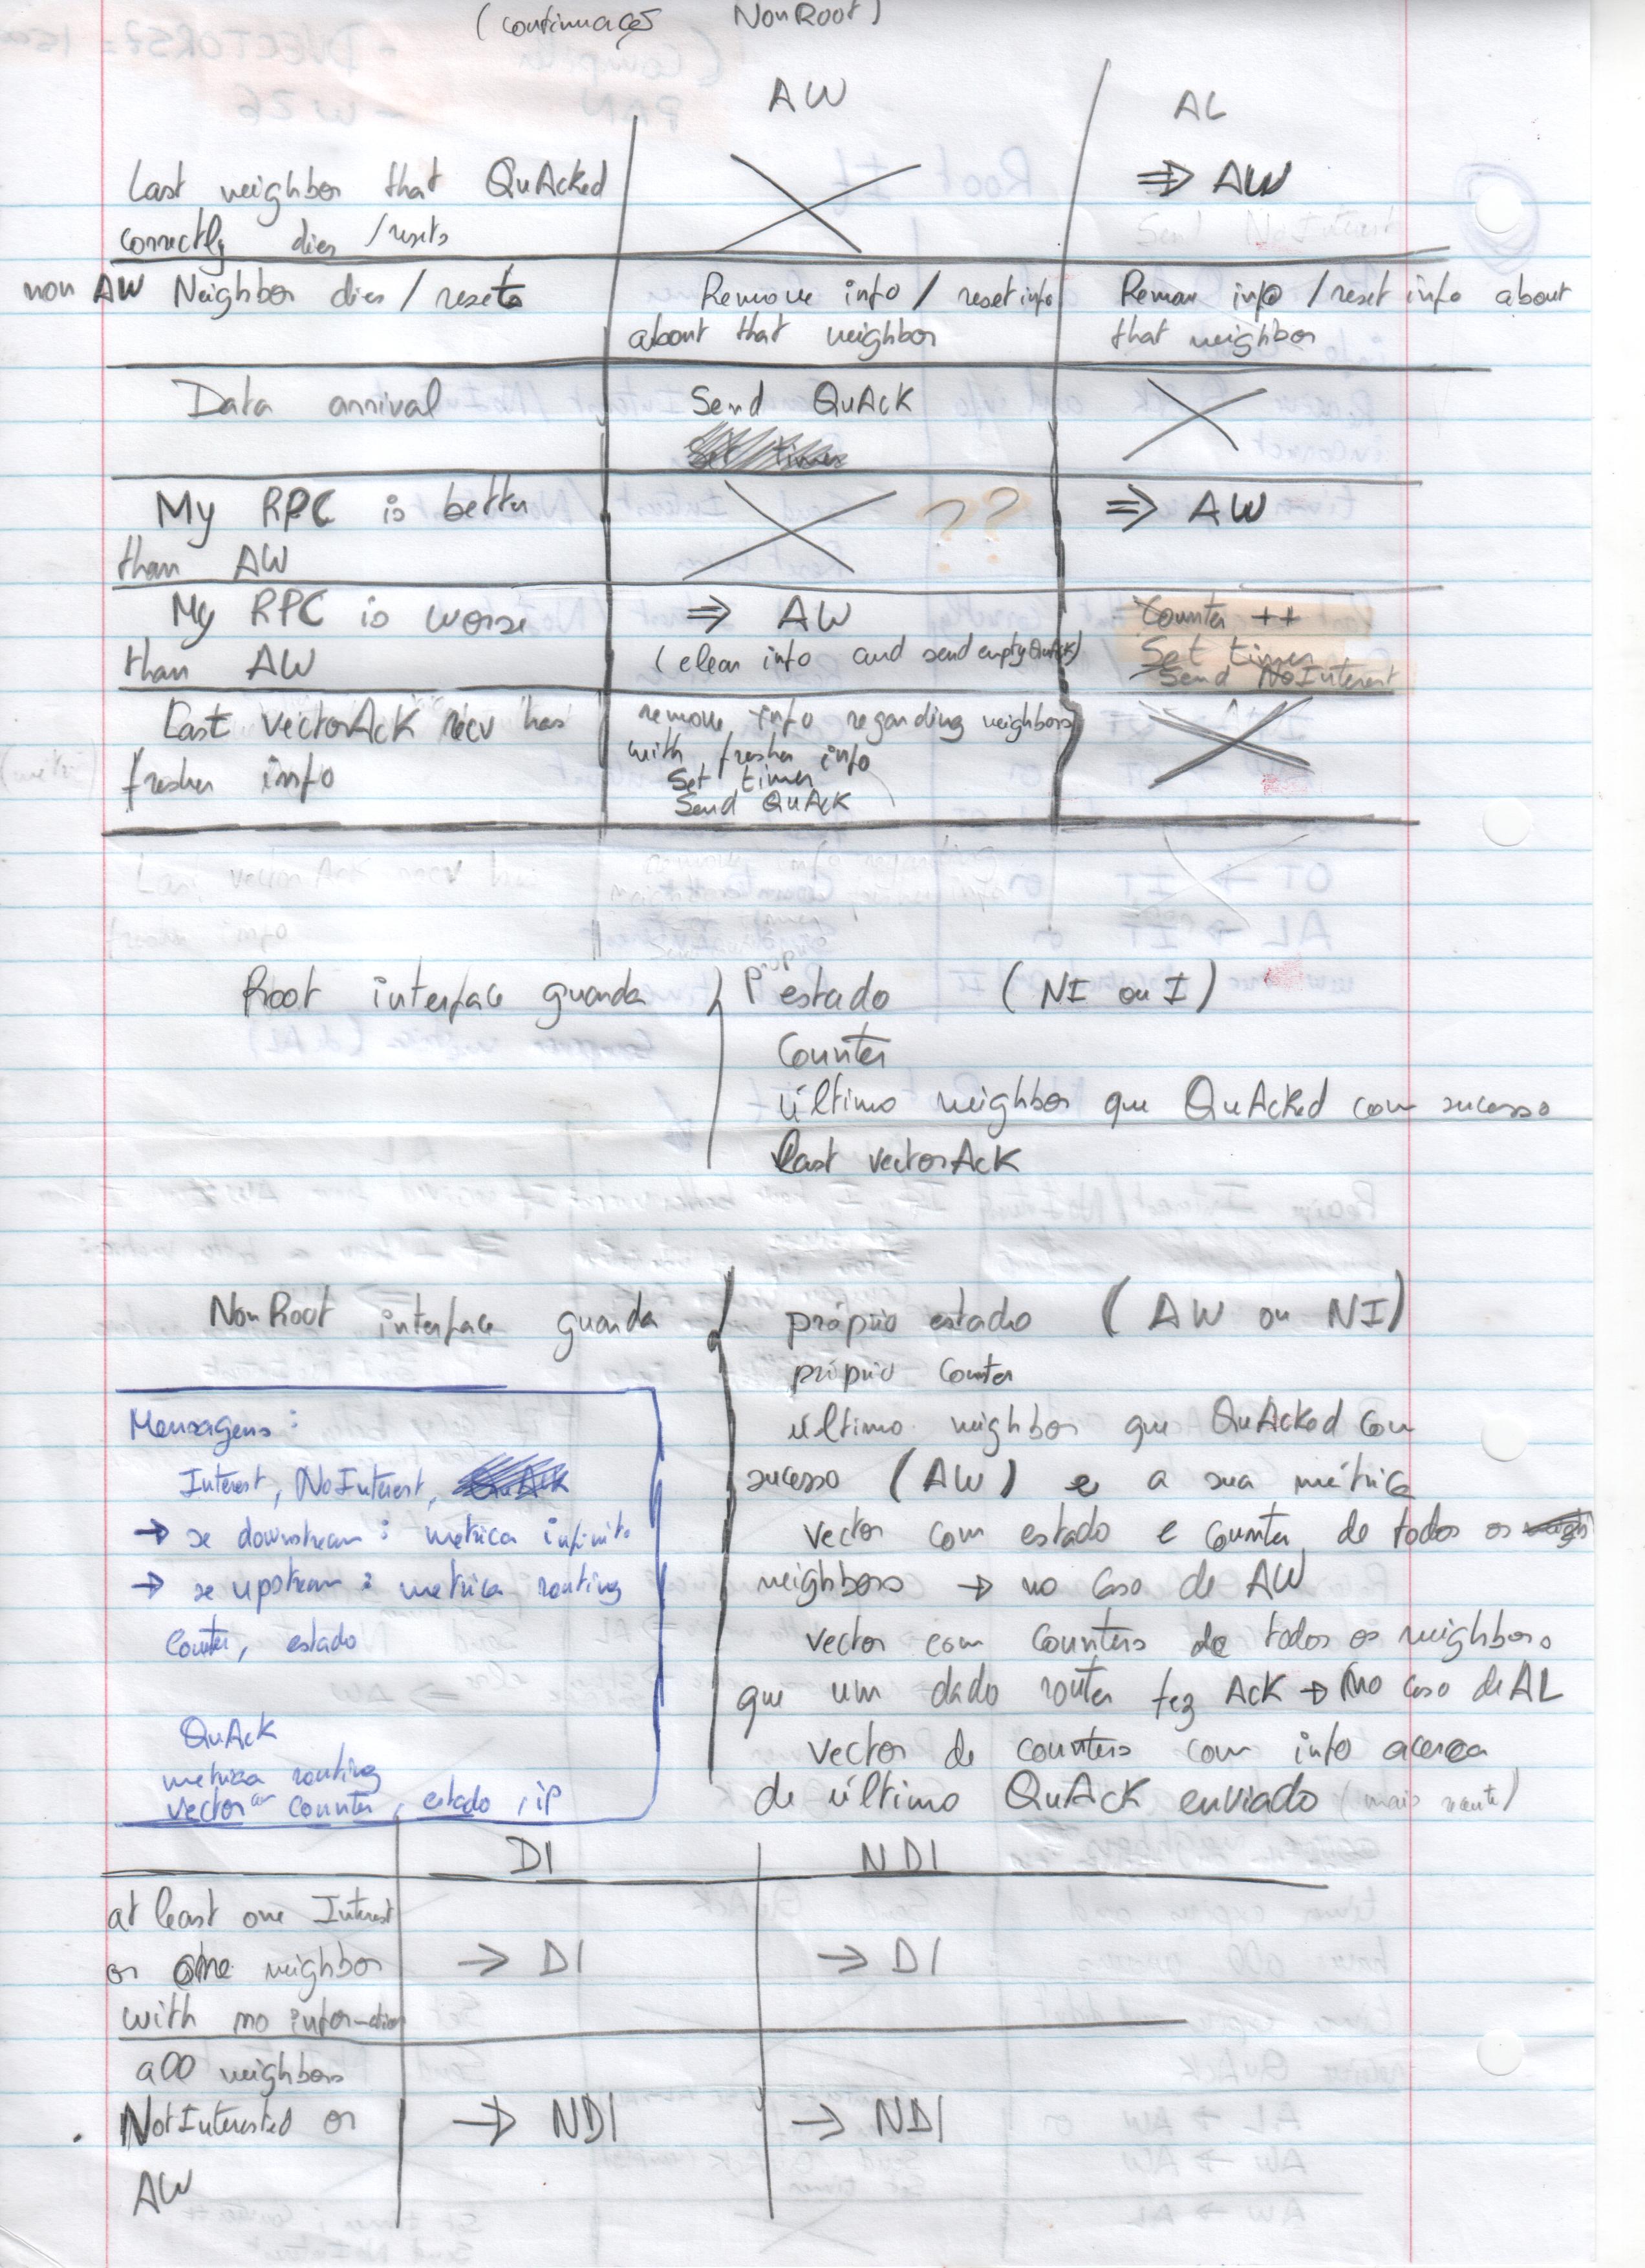 (continuação NonRoot)
AW AL
Last neighbor that QuAcked
correctly dies / resets
⇒ AW
Send NoInterest
non AW Neighbor dies / resets
Remove info / reset info
about that neighbor
Remove info / reset info about
that neighbor
Data arrival
Send QuAck
Set timer
My RPC is better
than AW
??
⇒ AW
My RPC is worse
than AW
⇒ AW
(clear info and send empty QuAck)
Counter ++
Set timer
Send NoInterest
Last vectorAck recv has
fresher info
remove info regarding neighbors
with fresher info
Set timer
Send QuAck
Last vectorAck recv has
fresher info
Root interface guarda
estado (NI ou I)
Counter
último neighbor que QuAcked com sucesso
last vectorAck
NonRoot interface guarda
próprio estado (AW ou NI)
próprio counter
último neighbor que QuAcked com
sucesso (AW) e a sua métrica
vector com estado e counter de todos os
neighbors → no caso de AW
vector com counters de todos os neighbors
que um dado router fez Ack → no caso de AL
vector de counters com info acerca
de último QuAck enviado (mais recente)
Mensagens:
Interest, NoInterest, QuAck
→ se downstream: metrica infinito
→ se upstream: metrica routing
Counter, estado
QuAck
metrica routing
vector counter, estado, ip
DI NDI
at least one Interest
or one neighbor
with no information
→ DI → DI
all neighbors
NotInterested or
AW
→ NDI → NDI